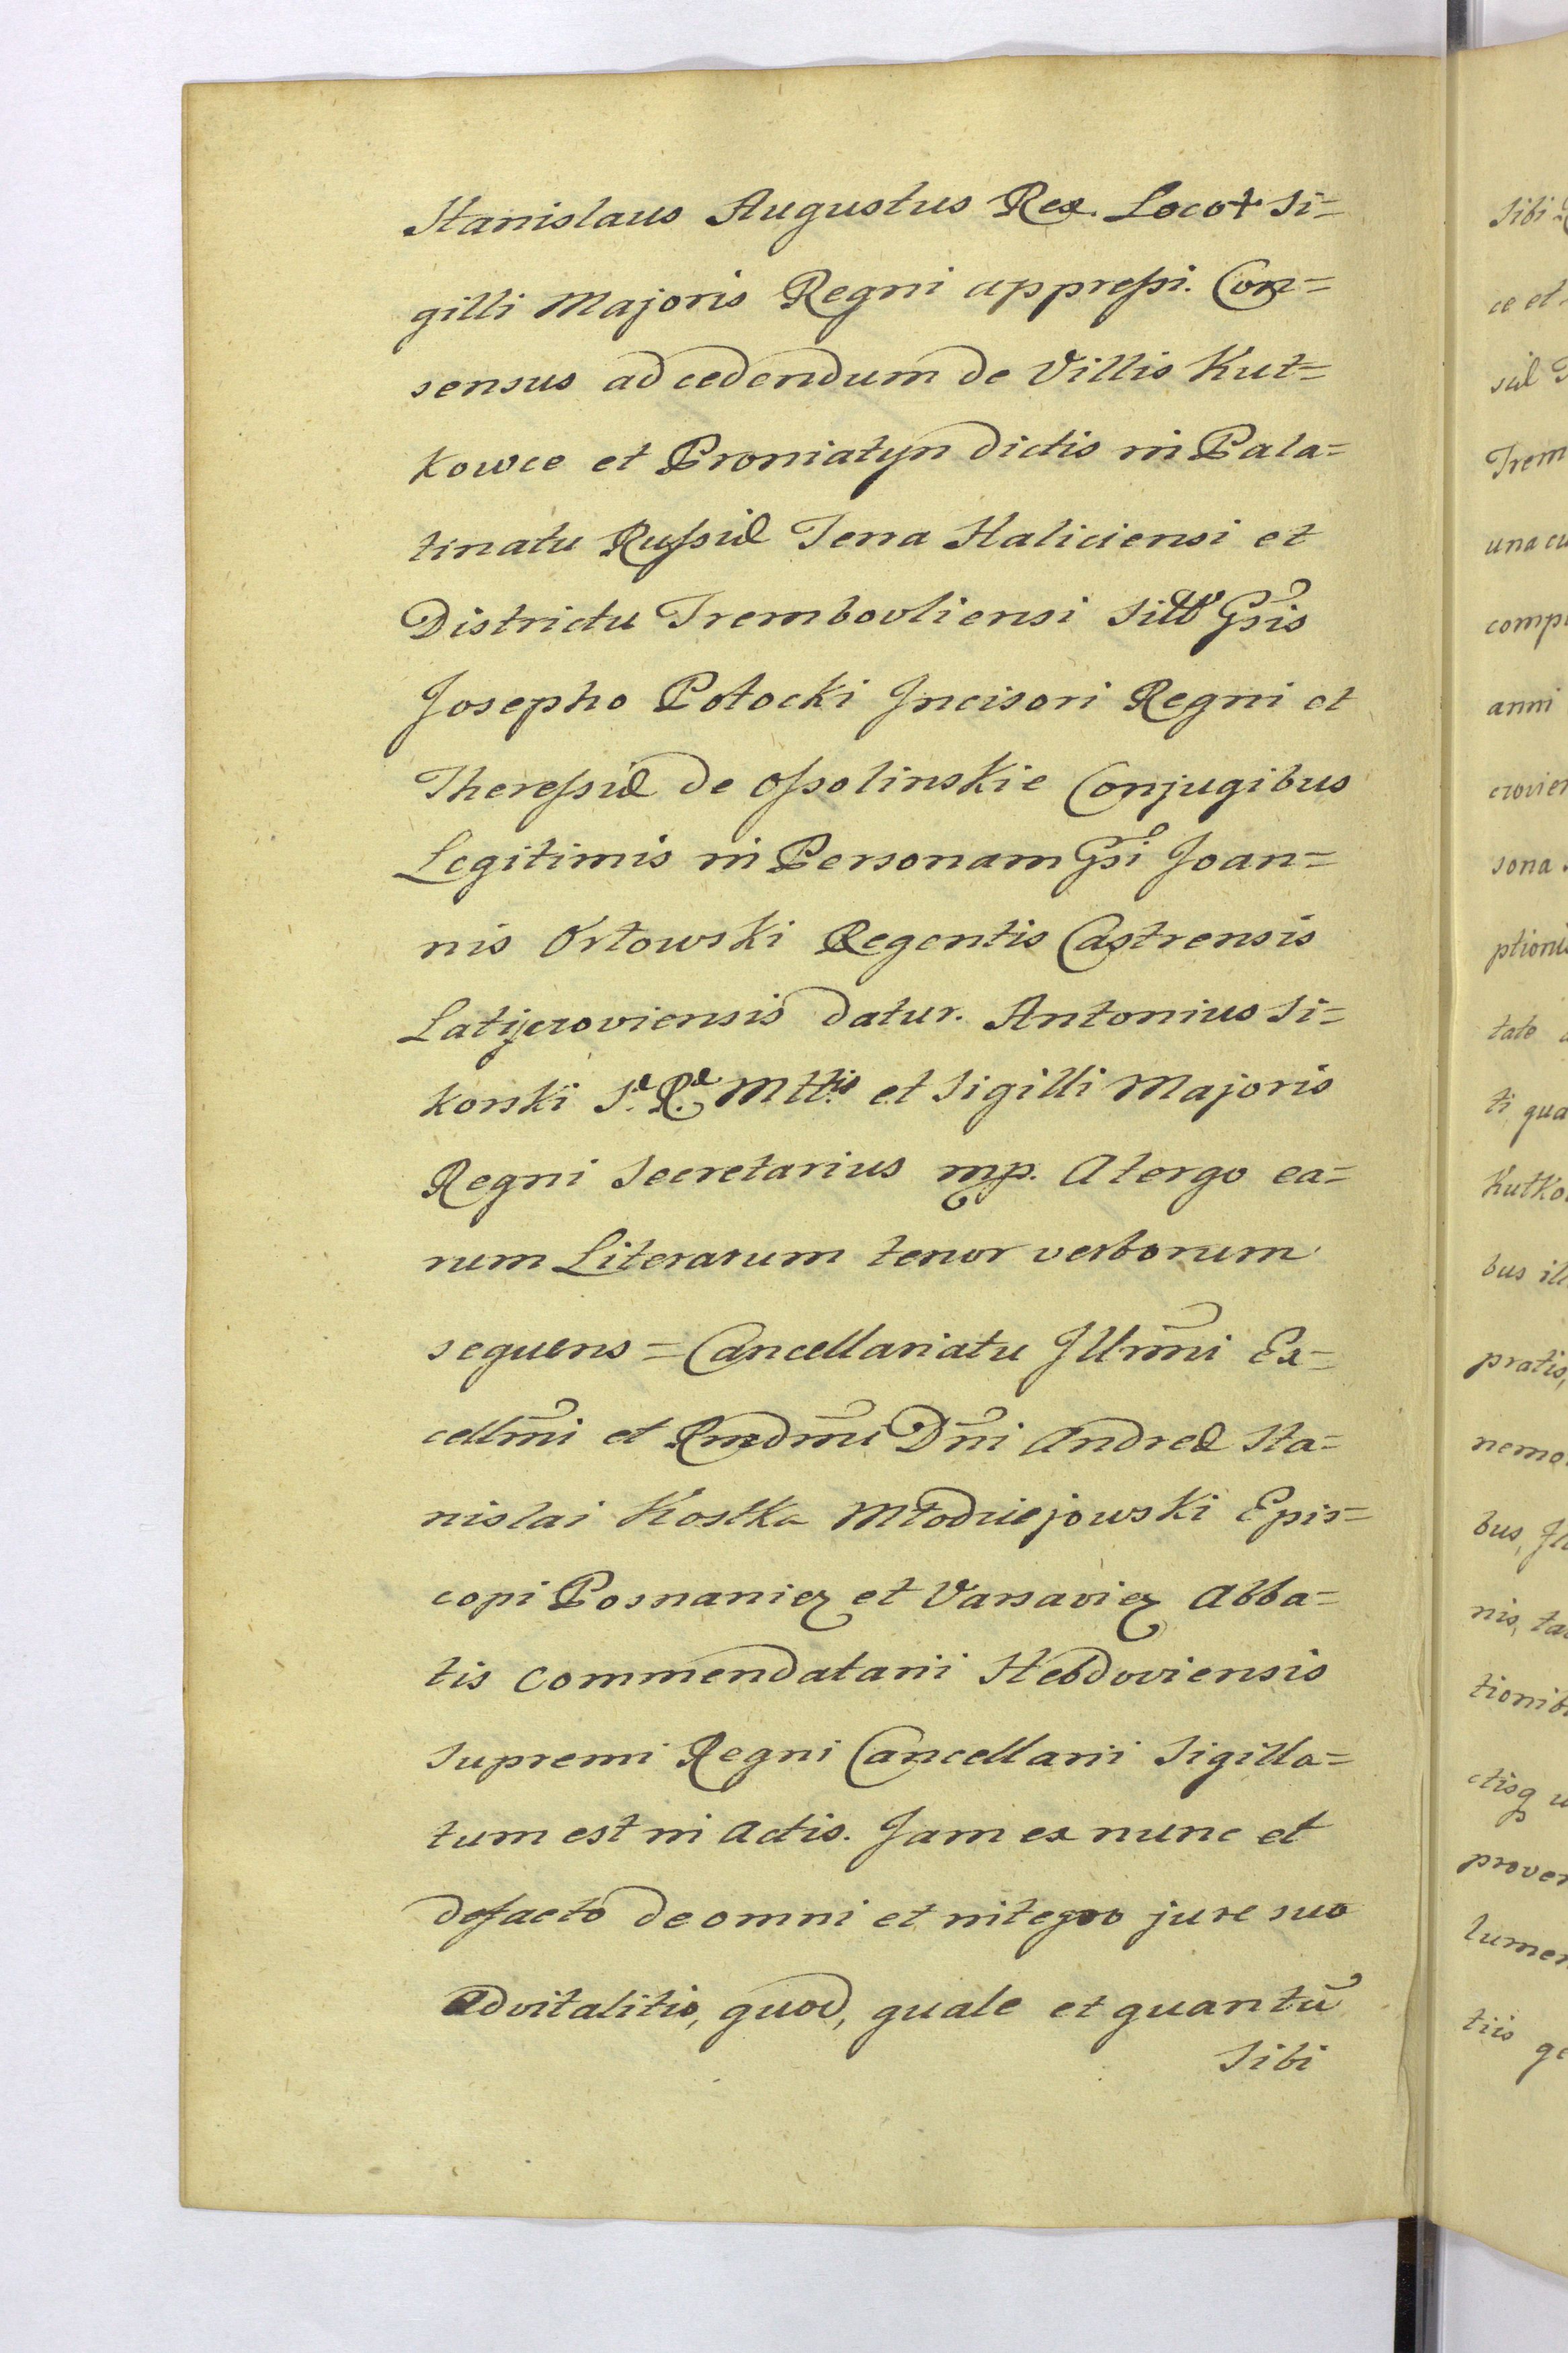 Stanislaus Augustus Rex. Loco + Si=
gilli Majoris Regni appressi. Con=
sensus ad cedendum de Villis Kut=
kowce et Proniatyn dictis in Pala=
tinatu Russiæ Terra Haliciensi et
Districtu Trembovliensi sittis Gsis
Josepho Potocki Incisori Regni et
Theressiæ de Ossolinskie Conjugibus
Legitimis in Personam Gsi Joan=
nis Orłowski Regentis Castrensis
Latyczoviensis datur. Antonius Si=
korski S.æ R.æ Mttis et Sigilli Majoris
Regni Secretarius mp. A tergo ea=
rum Literarum tenor verborum
sequens = Cancellariatu Illrmi Ex=
cellmi et Rmdmi Dni Andreæ Sta=
nislai Kostka Młodziejowski Epis=
copi Posnanien et Varsavien Abba=
tis Commendatarii Hebdoviensis
Supremi Regni Cancellarii Sigilla=
tum est in Actis. Jam ex nunc et
de facto de omni et integro jure suo
Advitalitio, quod, quale et quantũ
Sibi